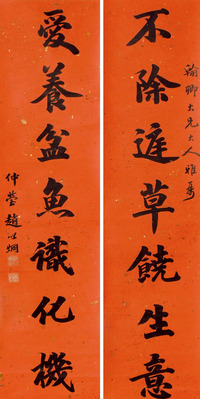 翰卿大兄大人雅屬
不除庭草饒生意
愛養盆魚識化機
仲瑩趙以炯